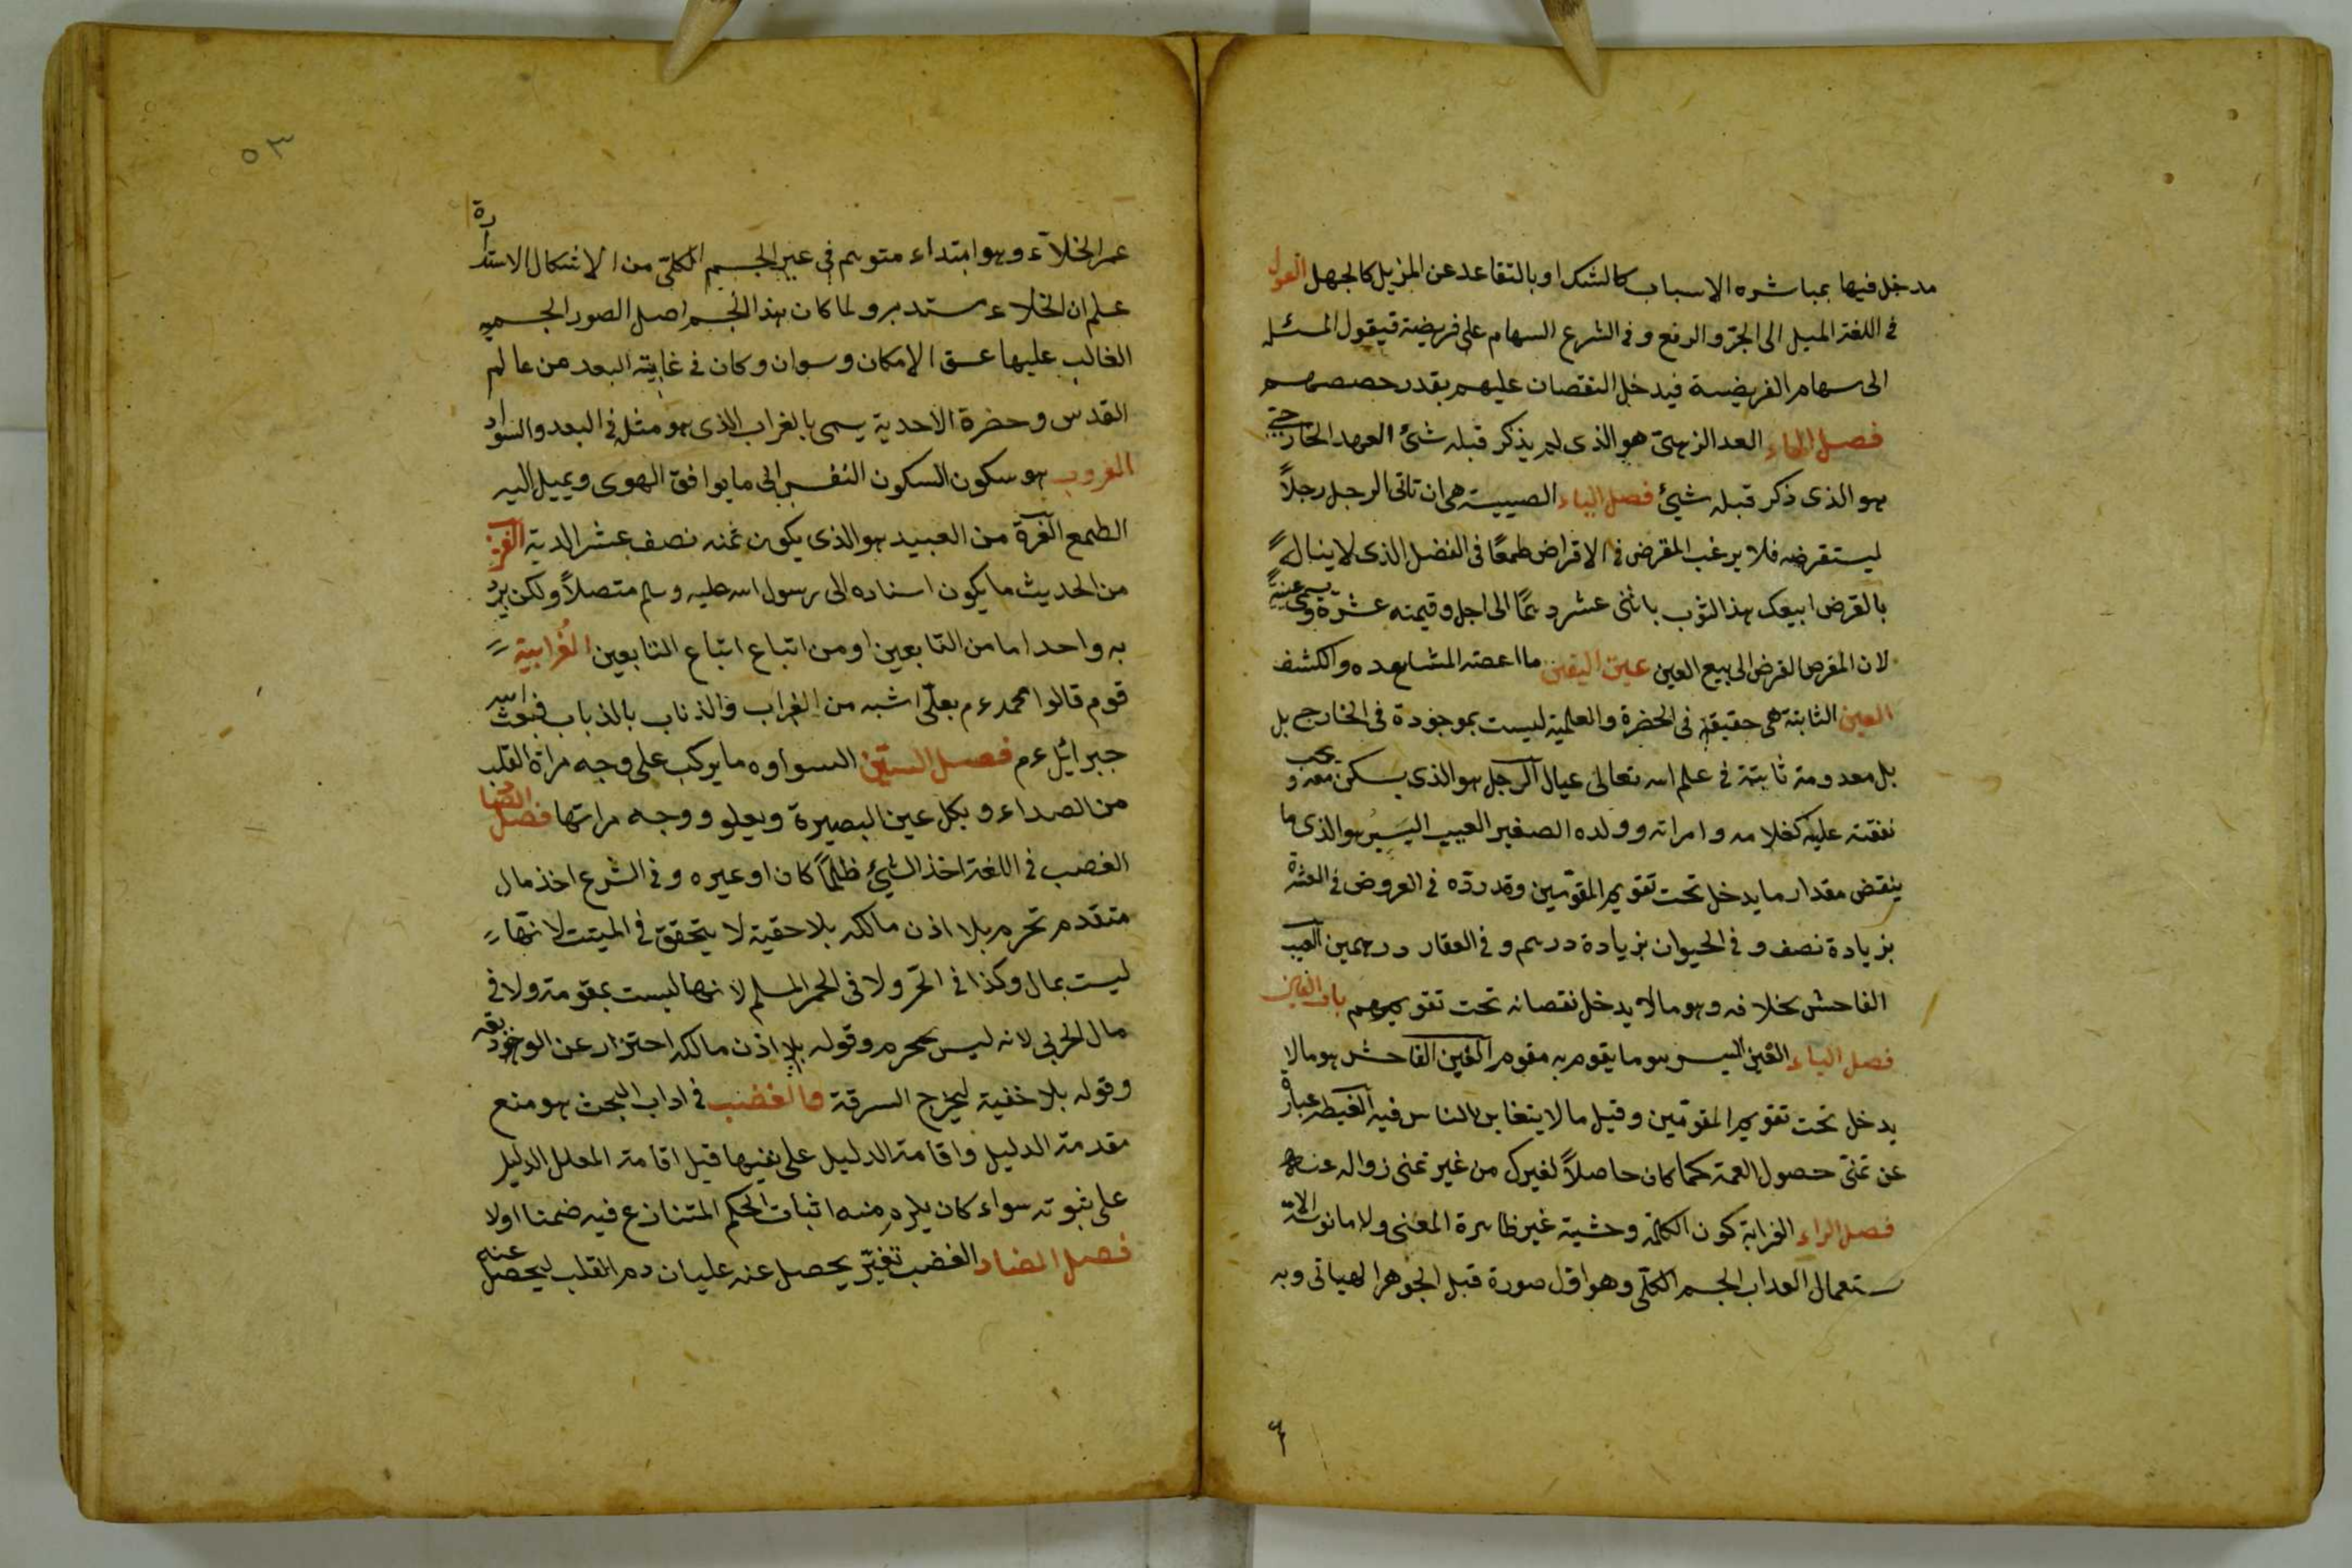 مدخل فيها بمباشره الاسباب كالشك او بالتقاعد عن المزيل كالجهل العول
فى اللغة الميل الى الجرّ والرفع وفى الشرع السهام على فريضة فيقول المسئله
الى سهام الفريضة فيدخل النقصان عليهم بقدر حصصهم
فصل الهاء العهد الذهنىّ هو الذى لم يذكر قبله شئ العهد الخارجىّ
هو الذى ذكر قبله شيئ فصل الياء هى ان تاتى الرجل رجلاً
ليستقرضه فلا يرغب المقرض فى الاقراض طمعًا فى الفضل الذى لا يناله
بالقرض ابيعك هذ الثوب باثنى عشر درهمًا الى اجل وقيمته عشرة ويسمى عينةً
لان المقرض القرض الى بيع العين عين اليقين ما اعصته المشاهده والكشف
العين الثابتة هى حقيقة فى الحضرة والعلمية ليست بموجودة فى الخارج بل
بل معدومة ثابتة فى علم الله تعالى عيال الرجل هو الذى يسكن معه ويجب
نفقته عليه كغلامه وامراته وولده الصغير العيب اليَسير هو الذى ما
ينقض مقدار ما يدخل تحت تقويم المقوّمين وقدرده فى العروض فى العشرة
بزيادة نصف وفى الحيوان بزيادة درهم وفى العقار درهمين العيب
الفاحش بخلافه وهو مالا يدخل نقصانه تحت تقويمهم باب الغين
فصل الباء الغبن اليسير هو ما يقوم به مقوم الغبن الفاحش هو مالا
يدخل تحت تقويم المقوّمين وقيل مالا يتغابن الناس فيه الغبطه عبارة
عن تمنّى حصول النعمة كما كان حاصلاً لغيرك من غير تمنى زواله عنه
فصل الراء الغرابة كون الكلمة وحشية غير ظاهرة المعنى ولا مانوسة الا
ستعمال الغراب الجسم الكلّى وهو اوّل صورة قبل الجوهر الهبائى وبه
٥٣
عمر الخلآء وهو ابتداء متوهم فى غير الجسم الكلىّ من الاشكال الاستدارة
علم ان الخلاء ستدير ولما كان هذا الجسم اصل الصور الجسميه
الغالب عليها عسق الامكان وسوان وكان فى غاية البعد من عالم
القدس وحضرة الاحدية يسمى بالغراب الذى هو مثل فى البعد والسواد
الغروب هو سكون السكون النفس الى ما يوافق الهوى ويميل اليه
الطمع الغرة من العبيد هو الذى يكون ثمنه نصف عشر الدية الغريب
من الحديث ما يكون اسناده الى رسول الله عليه وسلم متصلاً ولكن يرد
به واحد اما من التابعين او من اتباع اتباع التابعين الغُرابية
قوم قالوا محمد ءم بعلىّ اشبه من الغراب والذناب بالذباب فبعث الله
جبرائيل ءم فصل الستين السواوه ما يركب على وجه مراة القلب
من الصداء ويكل عين البصيرة ويعلو ووجه مراتها فصل الصاد
الغصب فى اللغة اخذ الشيئ ظلمًا كان او غيره وفى الشرع اخذ مال
متقدم تحرم بلا اذن مالكه بلا حقية لا يتحقق فى الميتت لانّها
ليست بمال وكذا فى الحّر ولا فى الخمر المسلم لانها ليست بمقومة ولا فى
مال الحربى لانه ليس بمحرم وقوله بلا اذن مالكه احترار عن الوديعة
وقوله بلا خفية ليخرج السرقة والغضب فى اداب البحث هو منع
مقدمة الدليل واقامة الدليل على نفيها قبل اقامة المعلل الدليل
على ثبوته سواء كان يلزم منه اثبات الحكم المتنازع فيه ضمنا اولا
فصل الضاد الغضب تغيّر يحصل عنه غليان دم القلب ليحصل عنه